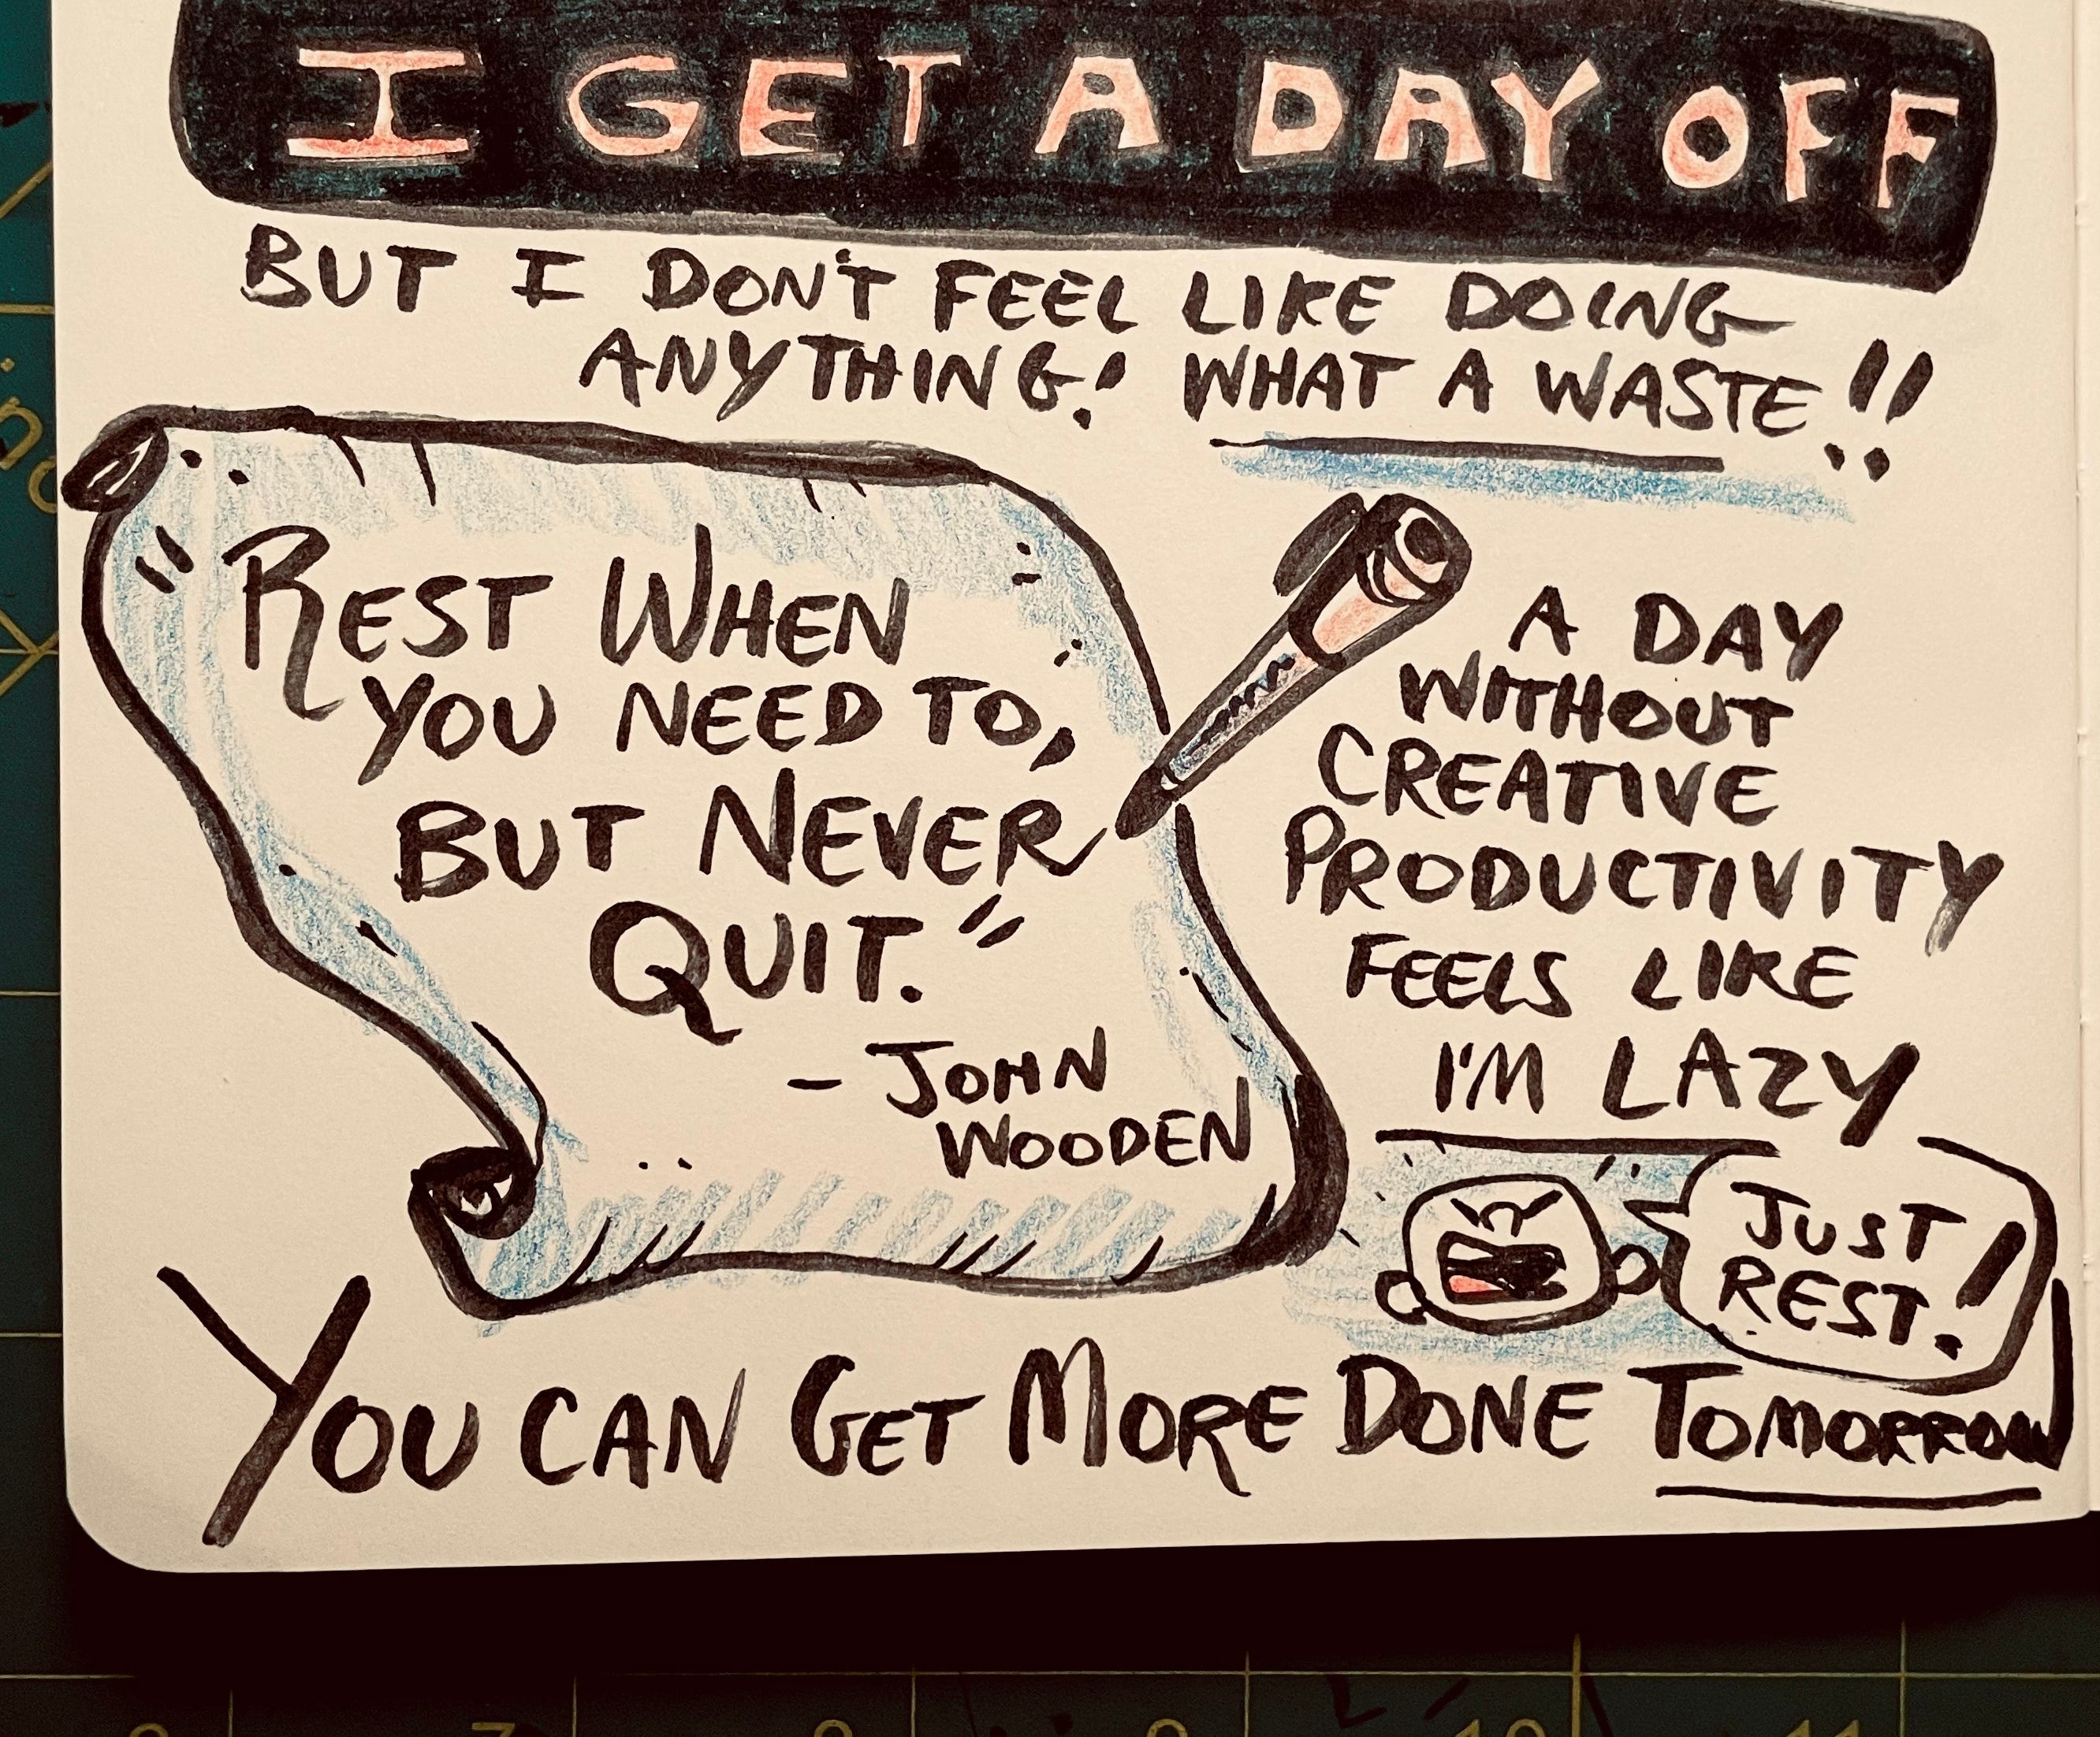 I GET A DAY OFF
BUT I DON'T FEEL LIKE DOING
ANYTHING! WHAT A WASTE!!
"REST WHEN
YOU NEED TO,
BUT NEVER
QUIT."
- JOHN
WOODEN
A DAY
WITHOUT
CREATIVE
PRODUCTIVITY
FEELS LIKE
I'M LAZY
JUST
REST!
YOU CAN GET MORE DONE TOMORROW
7
8
9
10
11